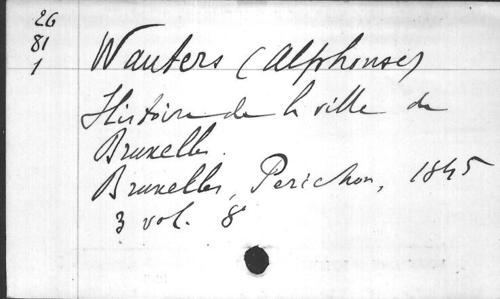 26
81
1
Wauters (Alphonse)
Histoire de la ville de
Bruxelles.
Bruxelles, Perichon, 1845
3 vol. 8°